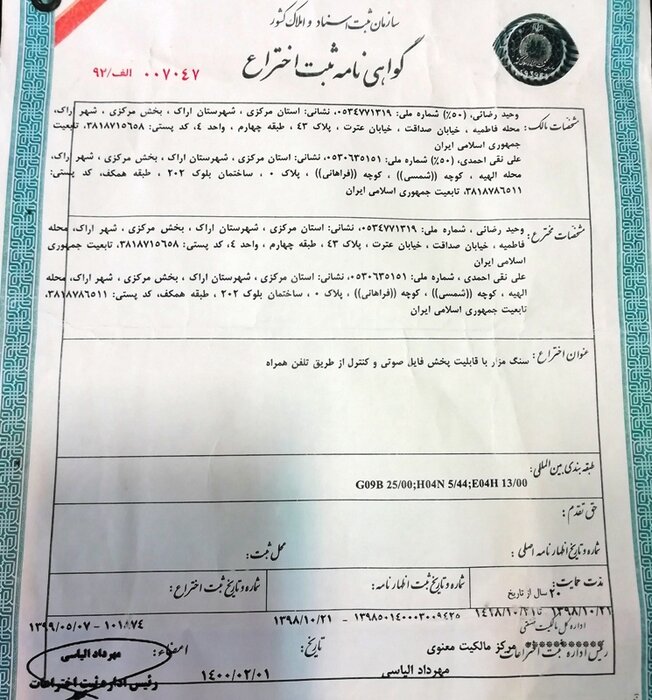 سازمان ثبت اسناد و املاک کشور
گواهی نامه ثبت اختراع
۰۰۷۰۴۷ الف/۹۲
مشخصات مالک: وحید رضائی، (۵۰٪) شماره ملی: ۰۵۳۴۷۷۱۳۱۹، نشانی: استان مرکزی ، شهرستان اراک، بخش مرکزی ، شهر اراک،
محله فاطمیه ، خیابان صداقت ، خیابان عترت ، پلاک ۴۳ ، طبقه چهارم ، واحد ۴، کد پستی: ۳۸۱۸۷۱۵۶۵۸، تابعیت
جمهوری اسلامی ایران
علی نقی احمدی، (۵۰٪) شماره ملی: ۰۵۳۰۶۳۵۱۵۱، نشانی: استان مرکزی ، شهرستان اراک ، بخش مرکزی ، شهر اراک،
محله الهیه ، کوچه ((شمسی)) ، کوچه ((فراهانی)) ، پلاک ۰ ، ساختمان بلوک ۲۰۲ ، طبقه همکف، کد پستی:
۳۸۱۸۷۸۶۵۱۱، تابعیت جمهوری اسلامی ایران
مشخصات مخترع: وحید رضائی ، شماره ملی: ۰۵۳۴۷۷۱۳۱۹، نشانی: استان مرکزی ، شهرستان اراک ، بخش مرکزی ، شهر اراک، محله
فاطمیه ، خیابان صداقت ، خیابان عترت ، پلاک ۴۳ ، طبقه چهارم ، واحد ۴، کد پستی: ۳۸۱۸۷۱۵۶۵۸، تابعیت جمهوری
اسلامی ایران
علی نقی احمدی ، شماره ملی: ۰۵۳۰۶۳۵۱۵۱، نشانی: استان مرکزی ، شهرستان اراک ، بخش مرکزی ، شهر اراک، محله
الهیه ، کوچه ((شمسی)) ، کوچه ((فراهانی)) ، پلاک ۰ ، ساختمان بلوک ۲۰۲ ، طبقه همکف، کد پستی: ۳۸۱۸۷۸۶۵۱۱،
تابعیت جمهوری اسلامی ایران
عنوان اختراع: سنگ مزار با قابلیت پخش فایل صوتی و کنترل از طریق تلفن همراه
طبقه بندی بین المللی:
G09B 25/00;H04N 5/44;E04H 13/00
حق تقدم:
شماره و تاریخ اظهارنامه اصلی: محل ثبت:
مدت حمایت: شماره و تاریخ ثبت اظهارنامه: شماره و تاریخ ثبت اختراع:
۲۰ سال از تاریخ
۱۳۹۸/۱۰/۲۱ تا ۱۴۱۸/۱۰/۲۱ ۱۳۹۸۵۰۱۴۰۰۰۳۰۰۹۴۲۵ - ۱۳۹۸/۱۰/۲۱ ۱۰۱۸۷۴ - ۱۳۹۹/۰۵/۰۷
اداره کل مالکیت صنعتی
رئیس اداره ثبت اختراعات مرکز مالکیت معنوی تاریخ: امضاء:
مهرداد الیاسی ۱۴۰۰/۰۲/۰۱ مهرداد الیاسی
رئیس اداره ثبت اختراعات